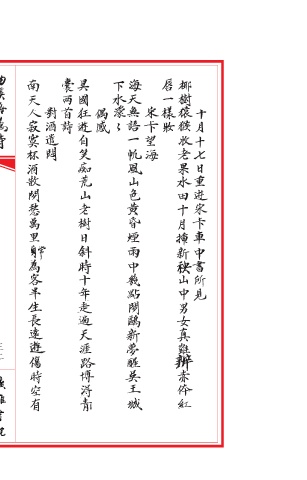 十月十七日重遊宋卡車中書所見
椰樹猿猴收老果水田十月插新秧山中男女真難辨赤体紅
唇一樣妝
宋卡望海
海天無語一帆風山色黃昏煙雨中幾點閒鷗新夢醒吳王城
下水濛濛
偶感
異國狂遊自笑痴荒山老樹日斜時十年走遍天涯路博得青
囊兩首詩
對酒遣悶
南天人寂寞杯酒散閒愁萬里身為客半生長遠遊傷時空有